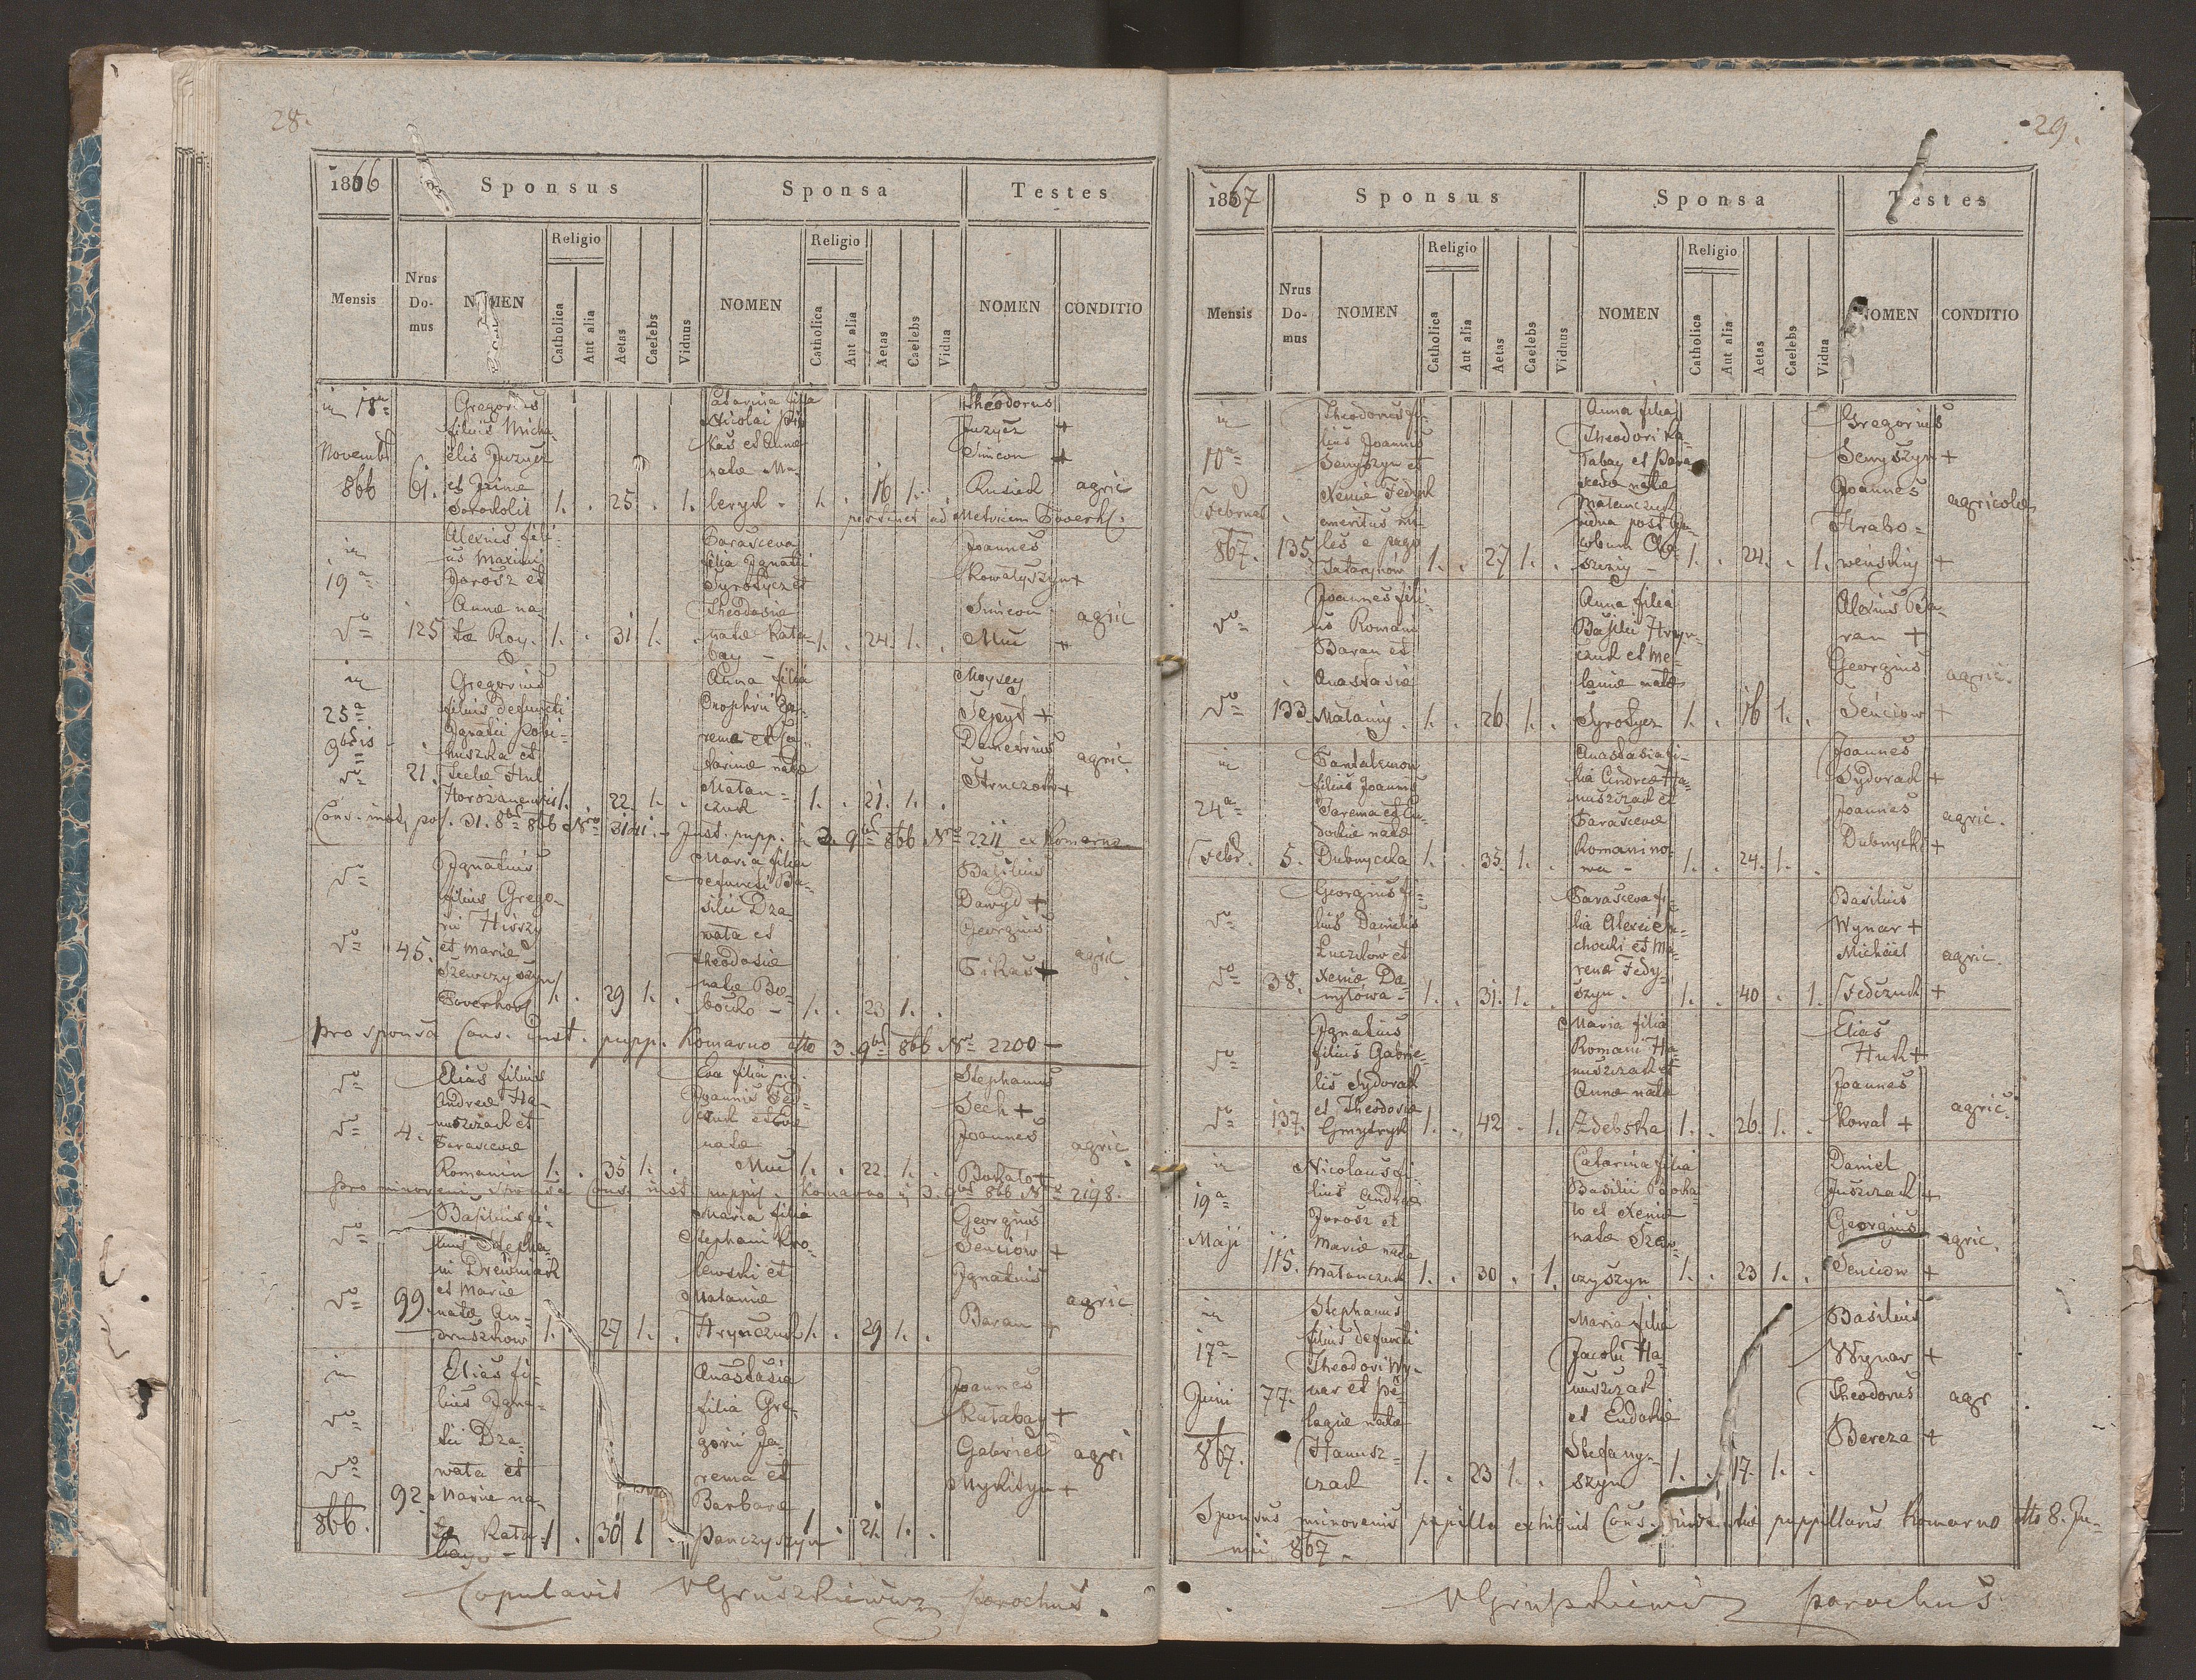 28.
1866
Sponsus
Sponsa
Testes
Mensis
Nrus Do- mus
NOMEN
Religio
Catholica
Aut alia
Aetas
Caelebs
Viduus
NOMEN
Religio
Catholica
Aut alia
Aetas
Caelebs
Vidua
NOMEN
CONDITIO
18a
Novembr
866
61.
Gregorius
filius Micha-
elis Juzycz
1. . 25 . 1.
Catarina filia
Nicolai
et Annæ
natæ
1. . 16 1. .
Theodorus
Juzycz +
Simeon +
Rusiech
agric
in
19a
do
125
Alexius fili-
us Maximi
Jarosz et
Annæ na-
tæ Roy. 1. . 31 1. .
Parasceva
filia Ignatii
Syrotycz et
Theodosiæ
natæ Kata- 1. . 24. 1. .
bay -
Joannes
Kowalyszyn +
Simeon
Muc +
agric
in
25a
9bris
do
21.
Gregorius
filius defuncti
Ignatii
et
Teclæ Hul
1. . 22. 1. .
Anna filia
Onophrii
et
natæ
Matan-
czuk 1. . 21. 1. .
Moysey
+
Demetrius
+
agric.
Cons. inst. 31. 8br 866 Nro Inst. pupp. 2. 9br 866 Nro 2211 ex Komarno
do
do
45.
Ignatius
filius Grego-
rii
et Mariæ
Szewczyszyn
1. . 29 1. .
Maria filia
defuncti Ba-
silii Dza-
wata et
Theodosiæ
natæ Bo-
1. . 23 1. .
Basilius
Dawyd +
Georgius
+
agric
pro sponsa Cons. Inst. pupp. Komarno dto 3. 9br 866 Nro 2200 -
do
do
4.
Elias filius
Andreæ Ha-
nuszczak et
Parascevæ
Romanin 1. . 35 1. .
Eva filia
Joannis Fed-
czuk et Evæ
natæ
Muc 1. . 22. 1. .
Stephanus
Sech +
Joannes
+
agric.
pro minorenni sponsa Cons. inst. puppil. Komarno 3. 9br 866 Nro 2198.
do
do
99.
Basilius fi-
lius Stepha-
ni Drewniak
et Mariæ
natæ An-
druszkow 1. . 27 1. .
Maria filia
Stephani Kro-
lewski et
Melaniæ
Hrynczuk 1. . 29 1. .
Georgius
Senciów +
Ignatius
Baran +
agric.
in
do
do
92.
866.
Elias fi-
lius Igna-
tii Dza-
wata et
Mariæ na-
tæ Kata-
bay - 1. . 30 1 .
Anastasia
filia Gre-
gorii Ja-
rema et
Barbaræ
Panczyszyn 1 . 21. 1. .
Joannes
Katabay +
Gabriel
Mykityn +
agri
Copulavit parochus.
29.
1867
Sponsus
Sponsa
Testes
Mensis
Nrus Do- mus
NOMEN
Religio
Catholica
Aut alia
Aetas
Caelebs
Viduus
NOMEN
Religio
Catholica
Aut alia
Aetas
Caelebs
Vidua
NOMEN
CONDITIO
in
10a
Februar
867.
135.
Theodorus fi-
lius Joannis
Semyszyn et
Xeniæ Fedyk
emeritus mi-
les e pago
Tatarynów 1. . 27 1. .
Anna filia
Theodori Ka-
tabay et Para-
scevæ natæ
Matanczuk
vidua post Ja-
cobum
1. . 24. . 1.
Gregorius
Semyszyn +
Joannes
Hrabo-
wenskiy +
agricolæ
do
do
133.
Joannes fili-
us Romani
Baran et
Anastasiæ
Matanig 1. . 26 1. .
Anna filia
Basilii Hryn-
czuk et Me-
laniæ natæ
Syrotycz 1. . 16 1. .
Alexius Ba-
ran +
Georgius
Senciow +
agric.
in
24a
Febr.
5.
Pantalemon
filius Joannis
Jarema et Eu-
dociæ natæ
Dubnycka 1. . 35. 1. .
Anastasia fi-
lia Andreæ Ha-
nuszczak et
Parascevæ
Romanino-
wa - 1. . 24. 1. .
Joannes
Sydorak +
Joannes
Dubnycki +
agric.
do
do
38.
Georgius fi-
lius Danielis
Luczków et
Xeniæ Da-
nytowa - 1. . 31. 1. .
Parasceva fi-
lia Alexii
et Ma-
renæ Fedy-
szyn. 1. . 40 . 1.
Basilius
Wynar +
Michäel
Fedczuk +
agric.
do
do
137.
Ignatius
filius Gabrie-
lis Sydorak
et Theodosiæ
Gmytryk 1. . 42 . 1.
Maria filia
Romani Ha-
nuszczak et
Annæ nata
Zdebska 1. . 26. 1. .
Elias
Huk +
Joannes
Kowal +
agric.
in
19a
Maji
115.
Nicolaus fi-
lius Andreæ
Jarosz et
Mariæ nata
Matanczuk 1. . 30 . 1.
Catarina filia
Basilii
et Xeniæ
natæ Szew-
czyszyn 1. . 23 1. .
Daniel
Juszczak +
Georgius
Senciow +
agric.
in
17a
Juni
867.
77.
Stephanus
filius defuncti
Theodori Wy-
nar et Pe-
lagiæ natæ
Hanusz-
czak 1. . 23 1. .
Maria filia
Jacobi Ha-
nuszczak
et Eudokiæ
Stefany-
szyn 1. . 17. 1. .
Basilius
Wynar +
Theodorus
Bereza +
agr
Sponsus minorenis pupilla exhibuit Cons. puppillaris Komarno dto 8. Ju-
nii 867.
parochus